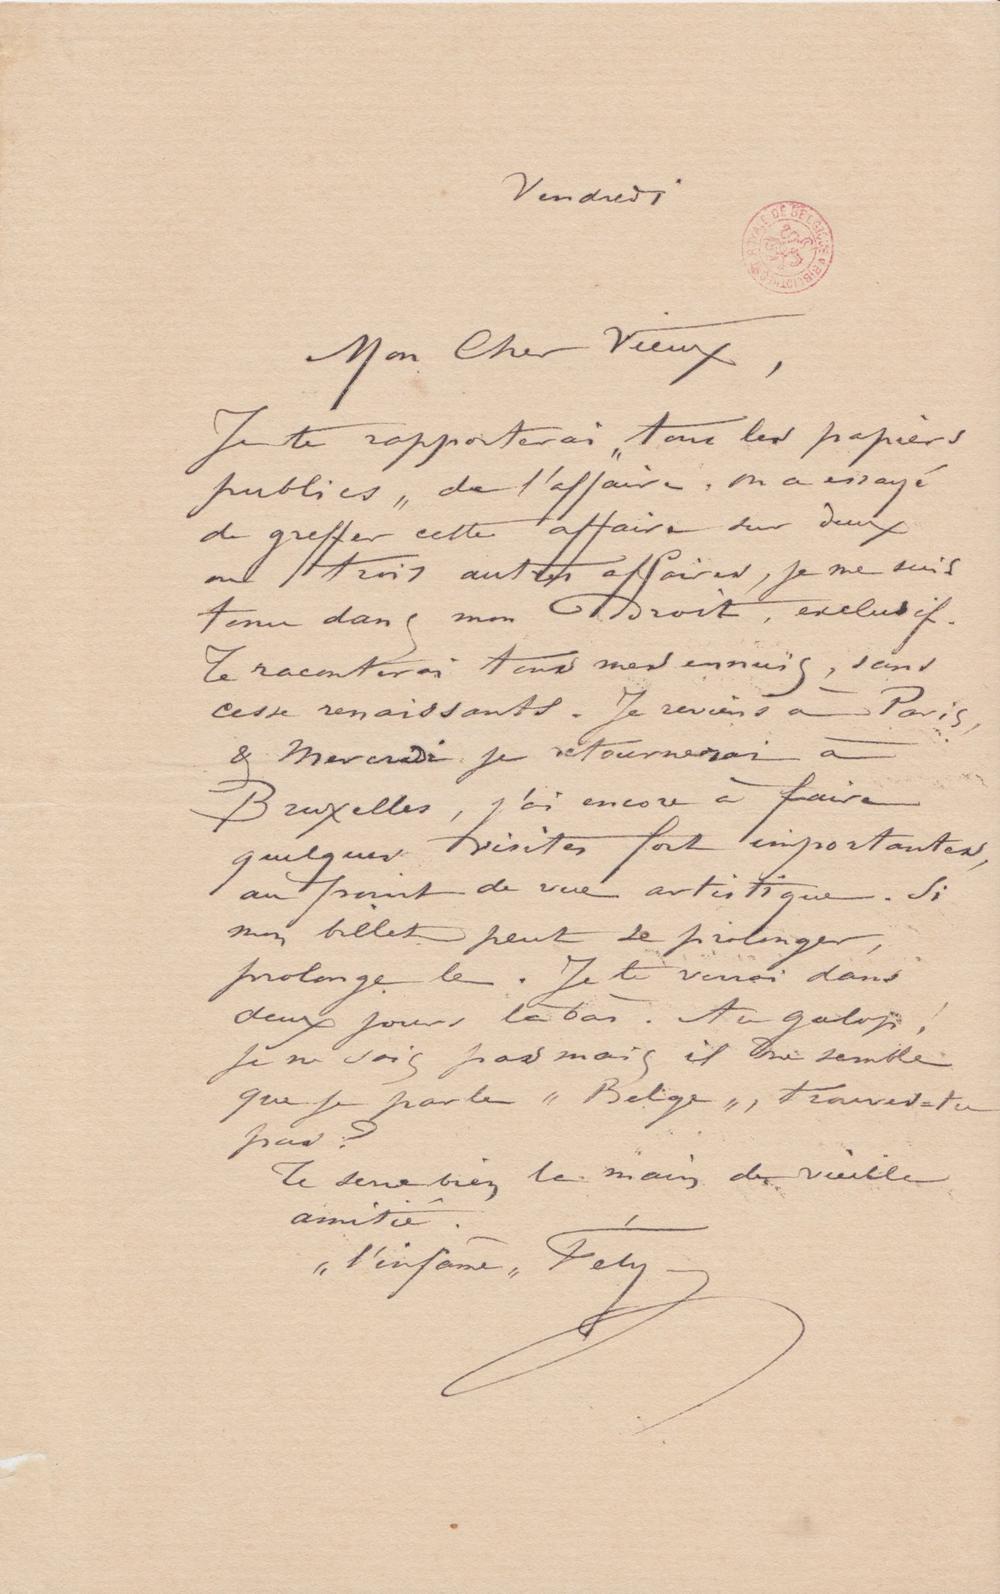 Vendredi
BIBLIOTHÈQUE ROYALE DE BELGIQUE
Mon Cher Vieux,
Je te rapporterai „tous les papiers
publics„ de l'affaire. On a essayé
de greffer cette affaire sur deux
ou trois autres affaires, je me suis
tenu dans mon Droit, exclusif.
Te raconterai tous mes ennuis, sans
cesse renaissants. Je reviens à Paris,
& Mercredi je retournerai à
Bruxelles, j'ai encore à faire
quelques visites fort importantes,
au point de vue artistique. Si
mon billet peut se prolonger,
prolonge le. Je te verrai dans
deux jours là bas. Au galop!
Je ne sais pas mais il me semble
que je parle „Belge„, trouves-tu
pas?
Te serre bien la main de vieille
amitié.
„l'infâme„ Fély